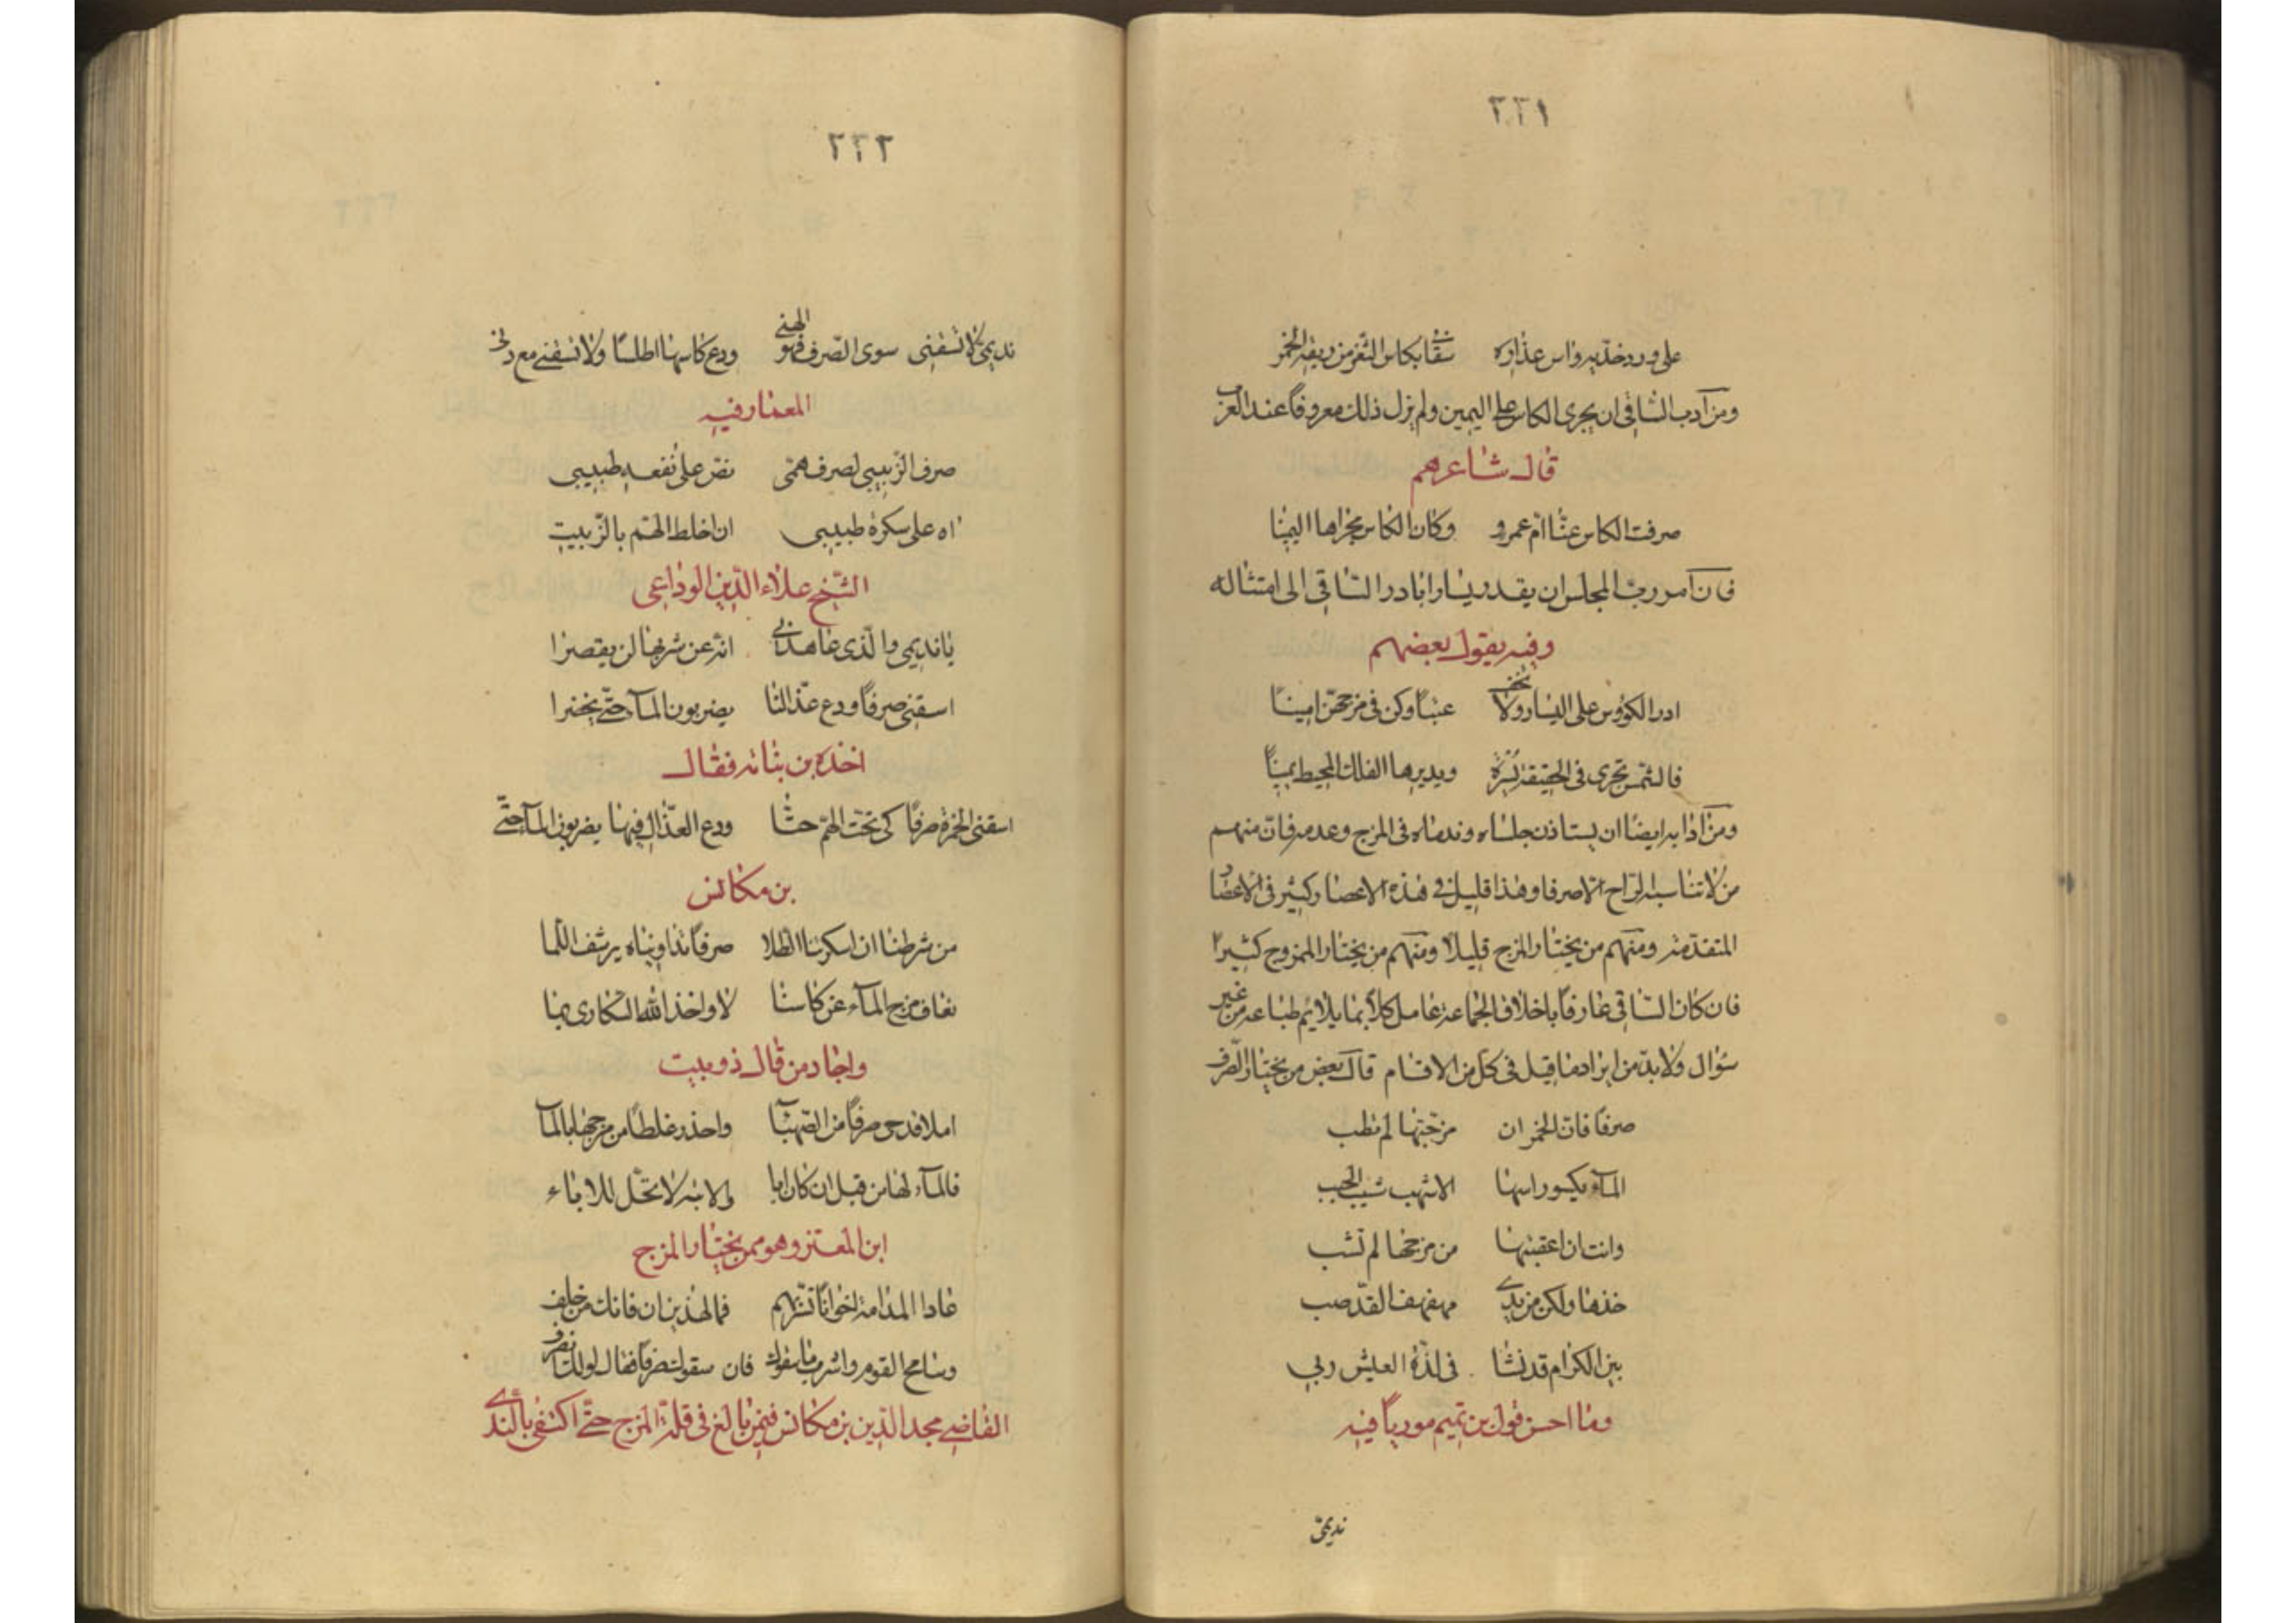 ٢٢١
على ورد خديه وآس عذاره سقا بكاس الثغر من ريقه الخمر
ومن آدب الساقى ان يجرى الكاس على اليمين ولم يزل ذلك معروفاً عند العرب
قال شاعرهم
صرفت الكاس عنّا ام عمرو وكان الكاس مجراها اليمينا
فان آمر ربّ المجلس ان يقدر يسارا بادر الساقى الى امتثاله
وفيه يقول بعضهم
ادر الكؤوس على اليسار ولا تخف عتباً وكن فى مزجهنّ امينا
فالشمس تجرى فى الحقيقة يسرة ويديرها الفلك المحيط يمينا
ومن آدابه ايضا ان يستاذن جلساه وندماه فى المزج وعدمه فانّ منهم
من لا تناسبه الراح الا صرفا وهذا قليل فى هذه الاعصار وكثير فى الاعصار
المتقدمة ومنهم من يختار المزج قليلا ومنهم من يختار الممزوج كثيرا
فان كان الساقى عارفاً باخلاق الجماعة عامل كلاً بما يلايم طباعه من غير
سؤال ولا بدّ من ايراد ما قيل فى كل من الاقسام قال بعض من يختار الصّرف
صرفا فانّ الخمر ان مزجتها لم تطب
المآء يكسو راسها الاشهب شيب الحبب
وانت ان اعقبتها من مزجها لم تشب
خذها ولكن من يدى مهفهف القدّ صب
بين الكرام قد نشا فى لذة العيش ربى
وما احسن قول بن تميم مورياً فيه
نديمىّ
٢٢٢
نديمىّ لا تسقنى سوى الصّرف فهو الهنى ودع كاسها اطلسا ولا تسقنى مع دنى
المعمار فيه
صرف الزبيبى لصرف همّى نصّ على نفعه طبيبى
اه على سكرة طبيبى ان اخلط الهم بالزّبيب
الشيخ علاء الدين الوداعى
يا نديمى والّذى عاهدنى انه عن شربها لن يقصرا
اسقنى صرفاً ودع عذّالنا يضربون المآ حتّى يخضرا
اخذه بن نباته فقال
اسقنى الخمرة صرفا كى تحتّ الهمّ حتّا ودع العذّال فيها يضربون المآ حتّى
بن مكانس
من شرطنا ان اسكرتنا الطلا صرفاً تداويناه يرشف اللّما
نعاف مزج المآء عن كاسنا لا واخذ الله السكارى بما
واجاد من قال ذو بيت
املا قدحى صرفاً من الصّهبآ واحذر غلطاً من مزجها بالمآ
فالمآء لها من قبل ان كان ابا والابنه لا تحّل للاباء
ابن المعتز وهو ممن يختار المزج
عاد المدامة اخواناً تسّرهم فما لهذين ان فاتك من خلف
وسامح القوم واشرب ما سقوك فان سقوك صرفاً فقال لولك
القاضى مجد الدين بن مكانس فيمن بالغ فى قلة المزج حتّى اكتفى بالندى